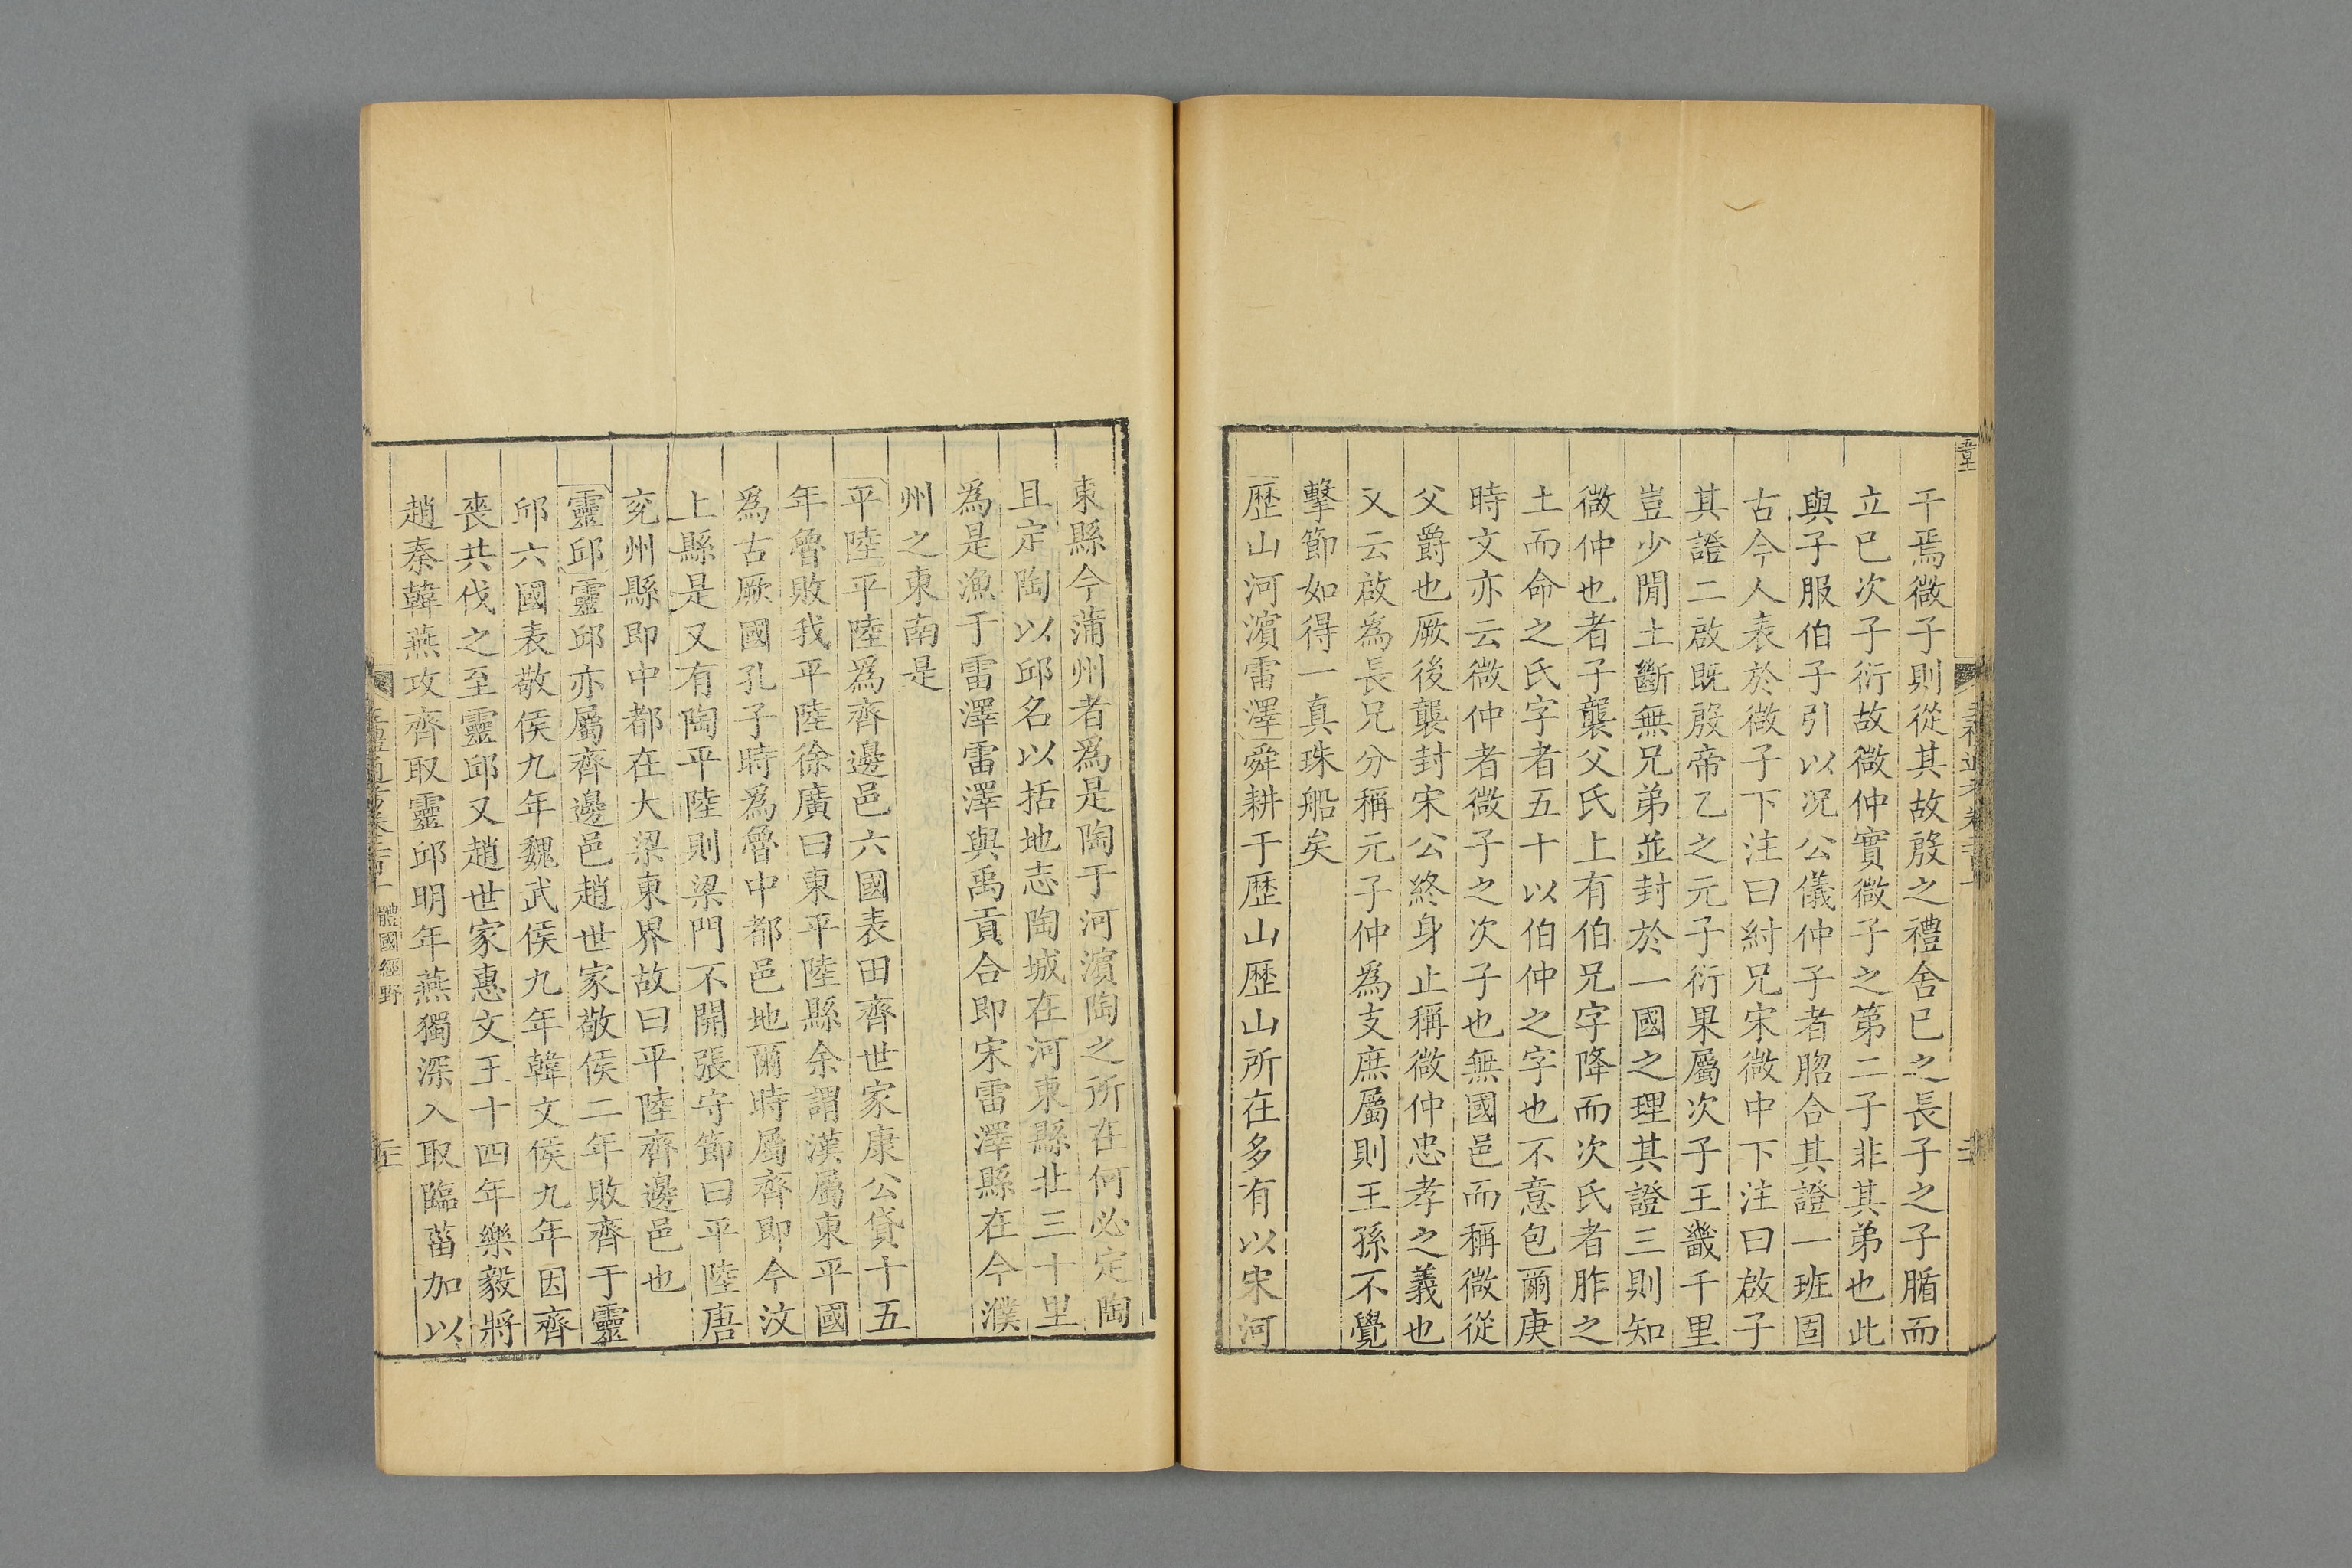 干焉微子則從其故殷之禮舍已之長子之子腯而
立已次子衍故微仲實微子之第二子非其弟也此
與子服伯子引以况公儀仲子者脗合其證一班固
古今人表於微子下注曰紂兄宋微中下注曰啟子
其證二啟既殷帝乙之元子衍果屬次子王畿千里
豈少閒土斷無兄弟並封於一國之理其證三則知
微仲也者子襲父氏上有伯兄字降而次氏者胙之
土而命之氏字者五十以伯仲之字也不意包爾庚
時文亦云微仲者微子之次子也無國邑而稱微從
父爵也厥後襲封宋公終身止稱微仲忠孝之義也
又云啟為長兄分稱元子仲為支庶屬則王孫不覺
擊節如得一真珠船矣
歷山河濵雷澤舜耕于歷山歷山所在多有以宋河
東縣今蒲州者為是陶于河濵陶之所在何必定陶
且定陶以邱名以括地志陶城在河東縣北三十里
為是漁于雷澤雷澤與禹貢合即宋雷澤縣在今濮
州之東南是
平陸平陸爲齊邊邑六國表田齊世家康公貸十五
年魯敗我平陸徐廣曰東平陸縣余謂漢屬東平國
為古厥國孔子時爲魯中都邑地爾時屬齊即今汶
上縣是又有陶平陸則梁門不開張守節曰平陸唐
兖州縣即中都在大梁東界故曰平陸齊邊邑也
靈邱靈邱亦屬齊邊邑趙世家敬侯二年敗齊于靈
邱六國表敬侯九年魏武侯九年韓文侯九年因齊
喪共伐之至靈邱又趙世家惠文王十四年樂毅將
趙秦韓燕攻齊取靈邱明年燕獨深入取臨菑加以
體國經野